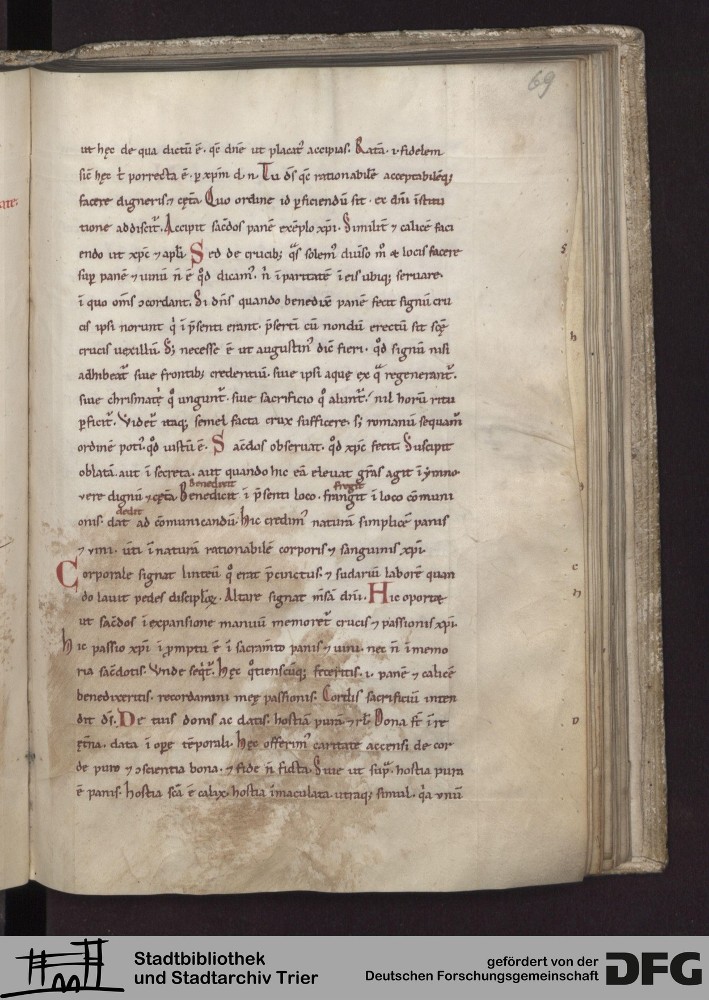 69
ut hęc de qua dictū ē. qc̄ dn̄e ut placatꝰ accipias. Ratā. i. fidelem
sic hęc t̄ porrecta ē. ꝑ xp̄m d. n. Tu ds̄ qc̄ rationabilē acceptabilēq;
facere digneris ⁊ cęt̄a. Quo ordine id ꝑficiendū sit. ex dn̄i īstitu
tione addiscit᷑. Accipit sac̄dos panē exēplo xp̄i. Similit̄ ⁊ calicē faci
endo ut xp̄c ⁊ apl̄i. Sed de crucib; q̄s solemꝰ diuiso mͦ ⁊ locis facere
suꝑ panē ⁊ uinū n̄ ē qͦd dicamꝰ. n̄ ī paritatē ī eis ubiq; seruare.
ī quo om̄s ↄcordant. Si dn̄s quando benedixit panē fecit signū cru
cis ipsi norunt qͥ ī p̄senti erant. p̄serti cū nondū erectū sit sc̄ę
crucis uexillū. S; necesse ē ut augustinꝰ dic̄ fieri. qͦd signū nisi
adhibeat᷑ siue frontib; credentiū. siue ipsi aquę ex qͣ regenerant᷑.
siue chrismati qͦ ungunt᷑. siue sacrificio qͦ alunt᷑. nil horū ritu
ꝑficit᷑. Videt᷑ itaq; semel facta crux sufficere. s; romanū sequam᷑
ordinē potiꝰ. qͦd uistū ē. Sac̄dos obseruat. qͦd xp̄c fecit. Suscipit
oblatā. aut ī secreta. aut quando hic eā eleuat gr̄as agit ī ẏmno.
benedixit fregit
vere dignū ⁊ cęt̄a. Benedicit ī p̄senti loco. frangit ī loco cōmuni
dedit
onis. dat ad cōmunicandū. Hic credimꝰ naturā simplicē panis
⁊ uini. uti ī naturā rationabilē corporis ⁊ sanguinis xp̄i.
Corporale signat linteū qͦ erat p̄cinctus. ⁊ sudariū laborē quan
do lauit pedes discipulorꝝ. Altare signat m̄sā dn̄i. Hic oportę
ut sac̄dos ī expansione manuū memoret᷑ crucis ⁊ passionis xp̄i.
Hic passio xp̄i ī ꝓmptu ē ī sacram̄to panis ⁊ uini. nec n̄ ī memo
ria sac̄dotis. Vnde seqͥt᷑. Hęc qͦtienscūq; feceritis. i. panē ⁊ calicē
benedixeritis. recordamini meę passionis. Cordis sacrificiū inten
dit ds̄. De tuis donis ac datis. hostiā purā ⁊ rl̄. Dona st̄ ī re
ęt̄na. data ī oꝑe tēporali. Hęc offerimꝰ caritate accensi. de cor
de puro ⁊ ↄscientia bona. ⁊ fide n̄ ficta. Siue ut suꝑ. hostia pura
ē panis. hostia sc̄a ē calix. hostia īmaculata utraq; simul. qͥa unū
s
h
c
n
v
Stadtbibliothek
und Stadtarchiv Trier
gefördert von der
Deutschen Forschungsgemeinschaft
DFG